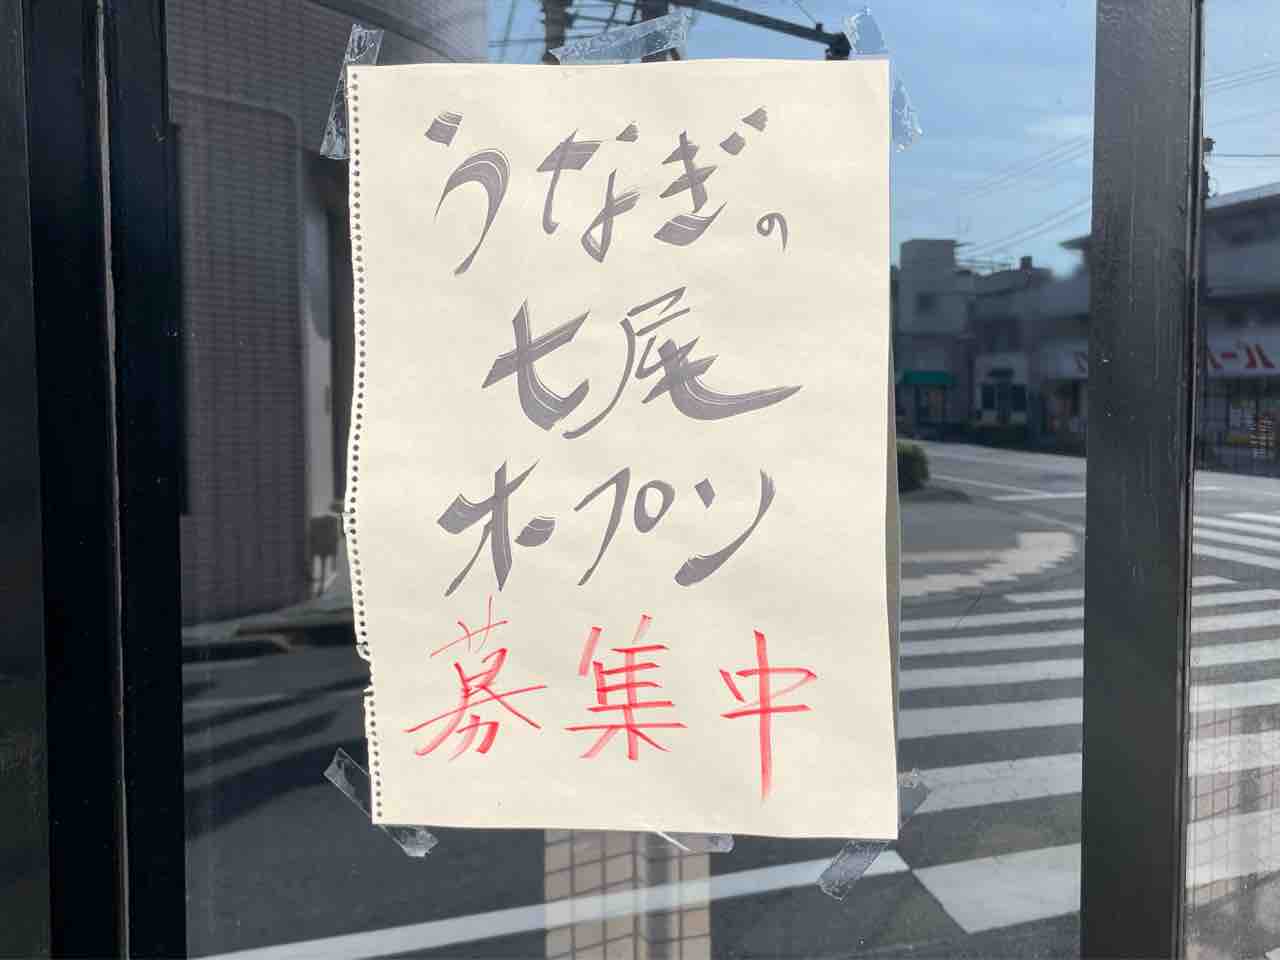 うなぎの
七尾
オープン
募集中